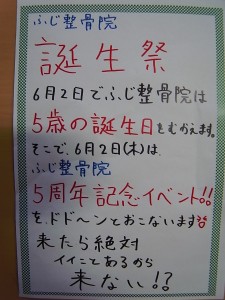 ふじ整骨院
誕生祭
6月2日でふじ整骨院は
5歳の誕生日をむかえます。
そこで、6月2日(木)は、
ふじ整骨院
5周年記念イベント!!
を、ドド〜ンとおこないます!!
来たら絶対
イイことあるから
来ない!?